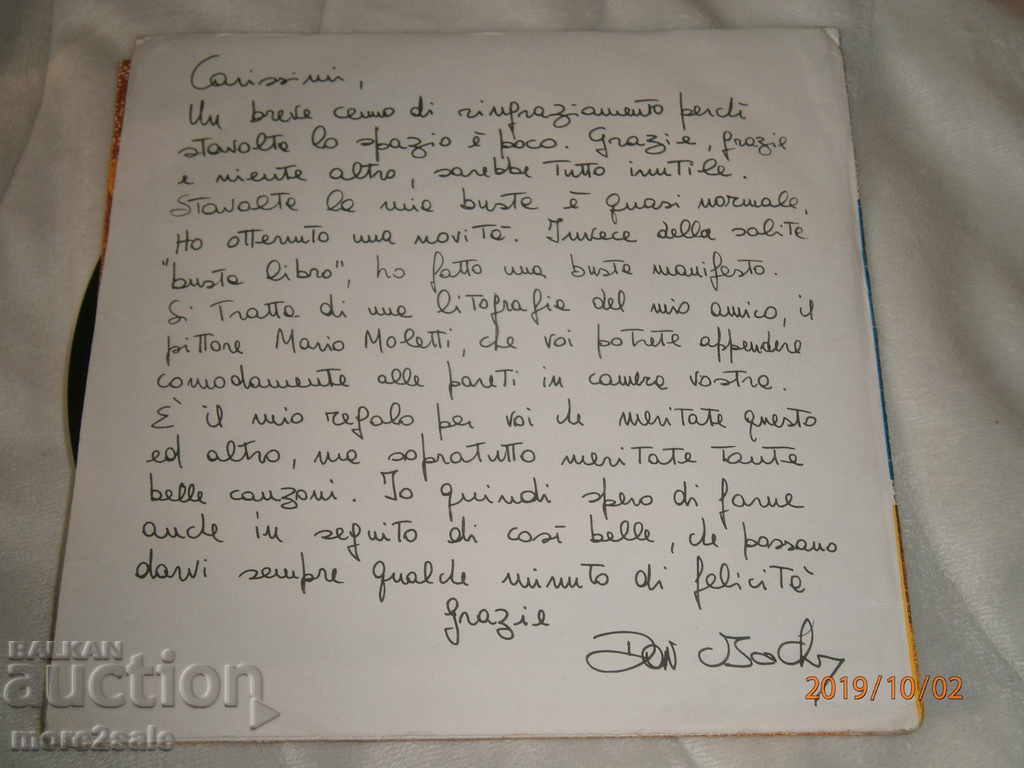 Carissimi,
Un breve cenno di ringraziamento perché
stavolta lo spazio è poco. Grazie, grazie
e niente altro, sarebbe tutto inutile.
Stavolta la mia busta è quasi normale.
Ho ottenuto una novità. Invece della solita
"busta libro", ho fatto una busta manifesto.
Si tratta di una litografia del mio amico, il
pittore Mario Moletti, che voi potrete appendere
comodamente alle pareti in camera vostra.
È il mio regalo per voi che meritate questo
ed altro, ma sopratutto meritate tante
belle canzoni. Io quindi spero di farne
anche in seguito di così belle, che possano
darvi sempre qualche minuto di felicità
Grazie
Don Backy
2019/10/02
BALKAN
auction
more2sale